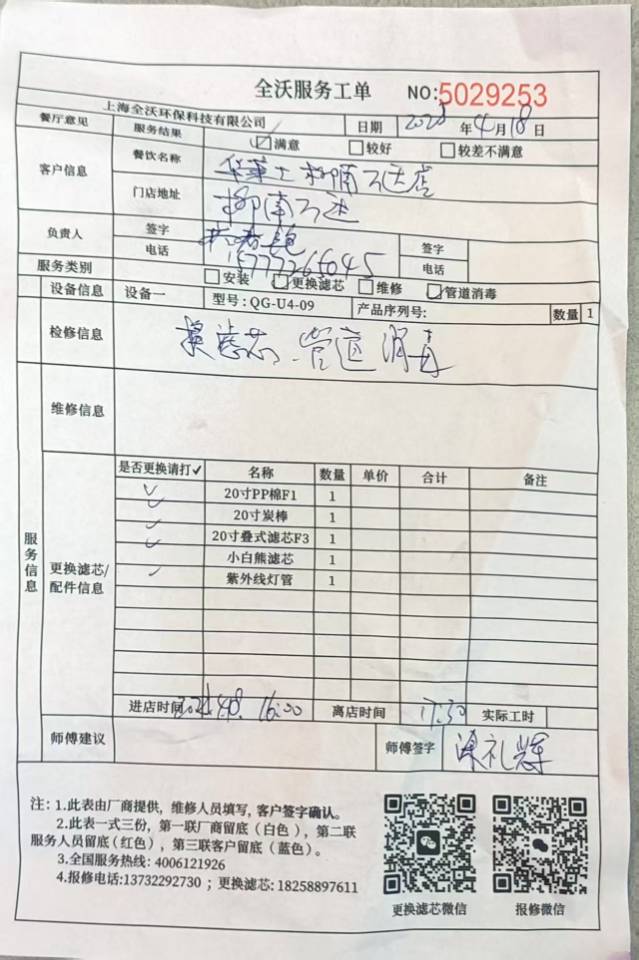 全沃服务工单 NO:5029253
上海全沃环保科技有限公司
餐厅意见 服务结果 满意 较好 较差不满意 日期 年4月18日
客户信息 餐饮名称 华莱士柳南万达店
门店地址 柳南万达
负责人 签字 签字
电话 电话
服务类别 安装 更换滤芯 维修 管道消毒
设备信息 设备一 型号:QG-U4-09 产品序列号: 数量 1
检修信息 换滤芯、管道消毒
维修信息
服务信息
更换滤芯/配件信息
是否更换请打✓ 名称 数量 单价 合计 备注
✓ 20寸PP棉F1 1
✓ 20寸炭棒 1
✓ 20寸叠式滤芯F3 1
✓ 小白熊滤芯 1
✓ 紫外线灯管 1
进店时间 16:00 离店时间 17:30 实际工时
师傅建议 师傅签字 陈礼辉
注:1.此表由厂商提供,维修人员填写,客户签字确认。
2.此表一式三份,第一联厂商留底(白色),第二联
服务人员留底(红色),第三联客户留底(蓝色)。
3.全国服务热线: 4006121926
4.报修电话:13732292730 ; 更换滤芯: 18258897611
更换滤芯微信 报修微信